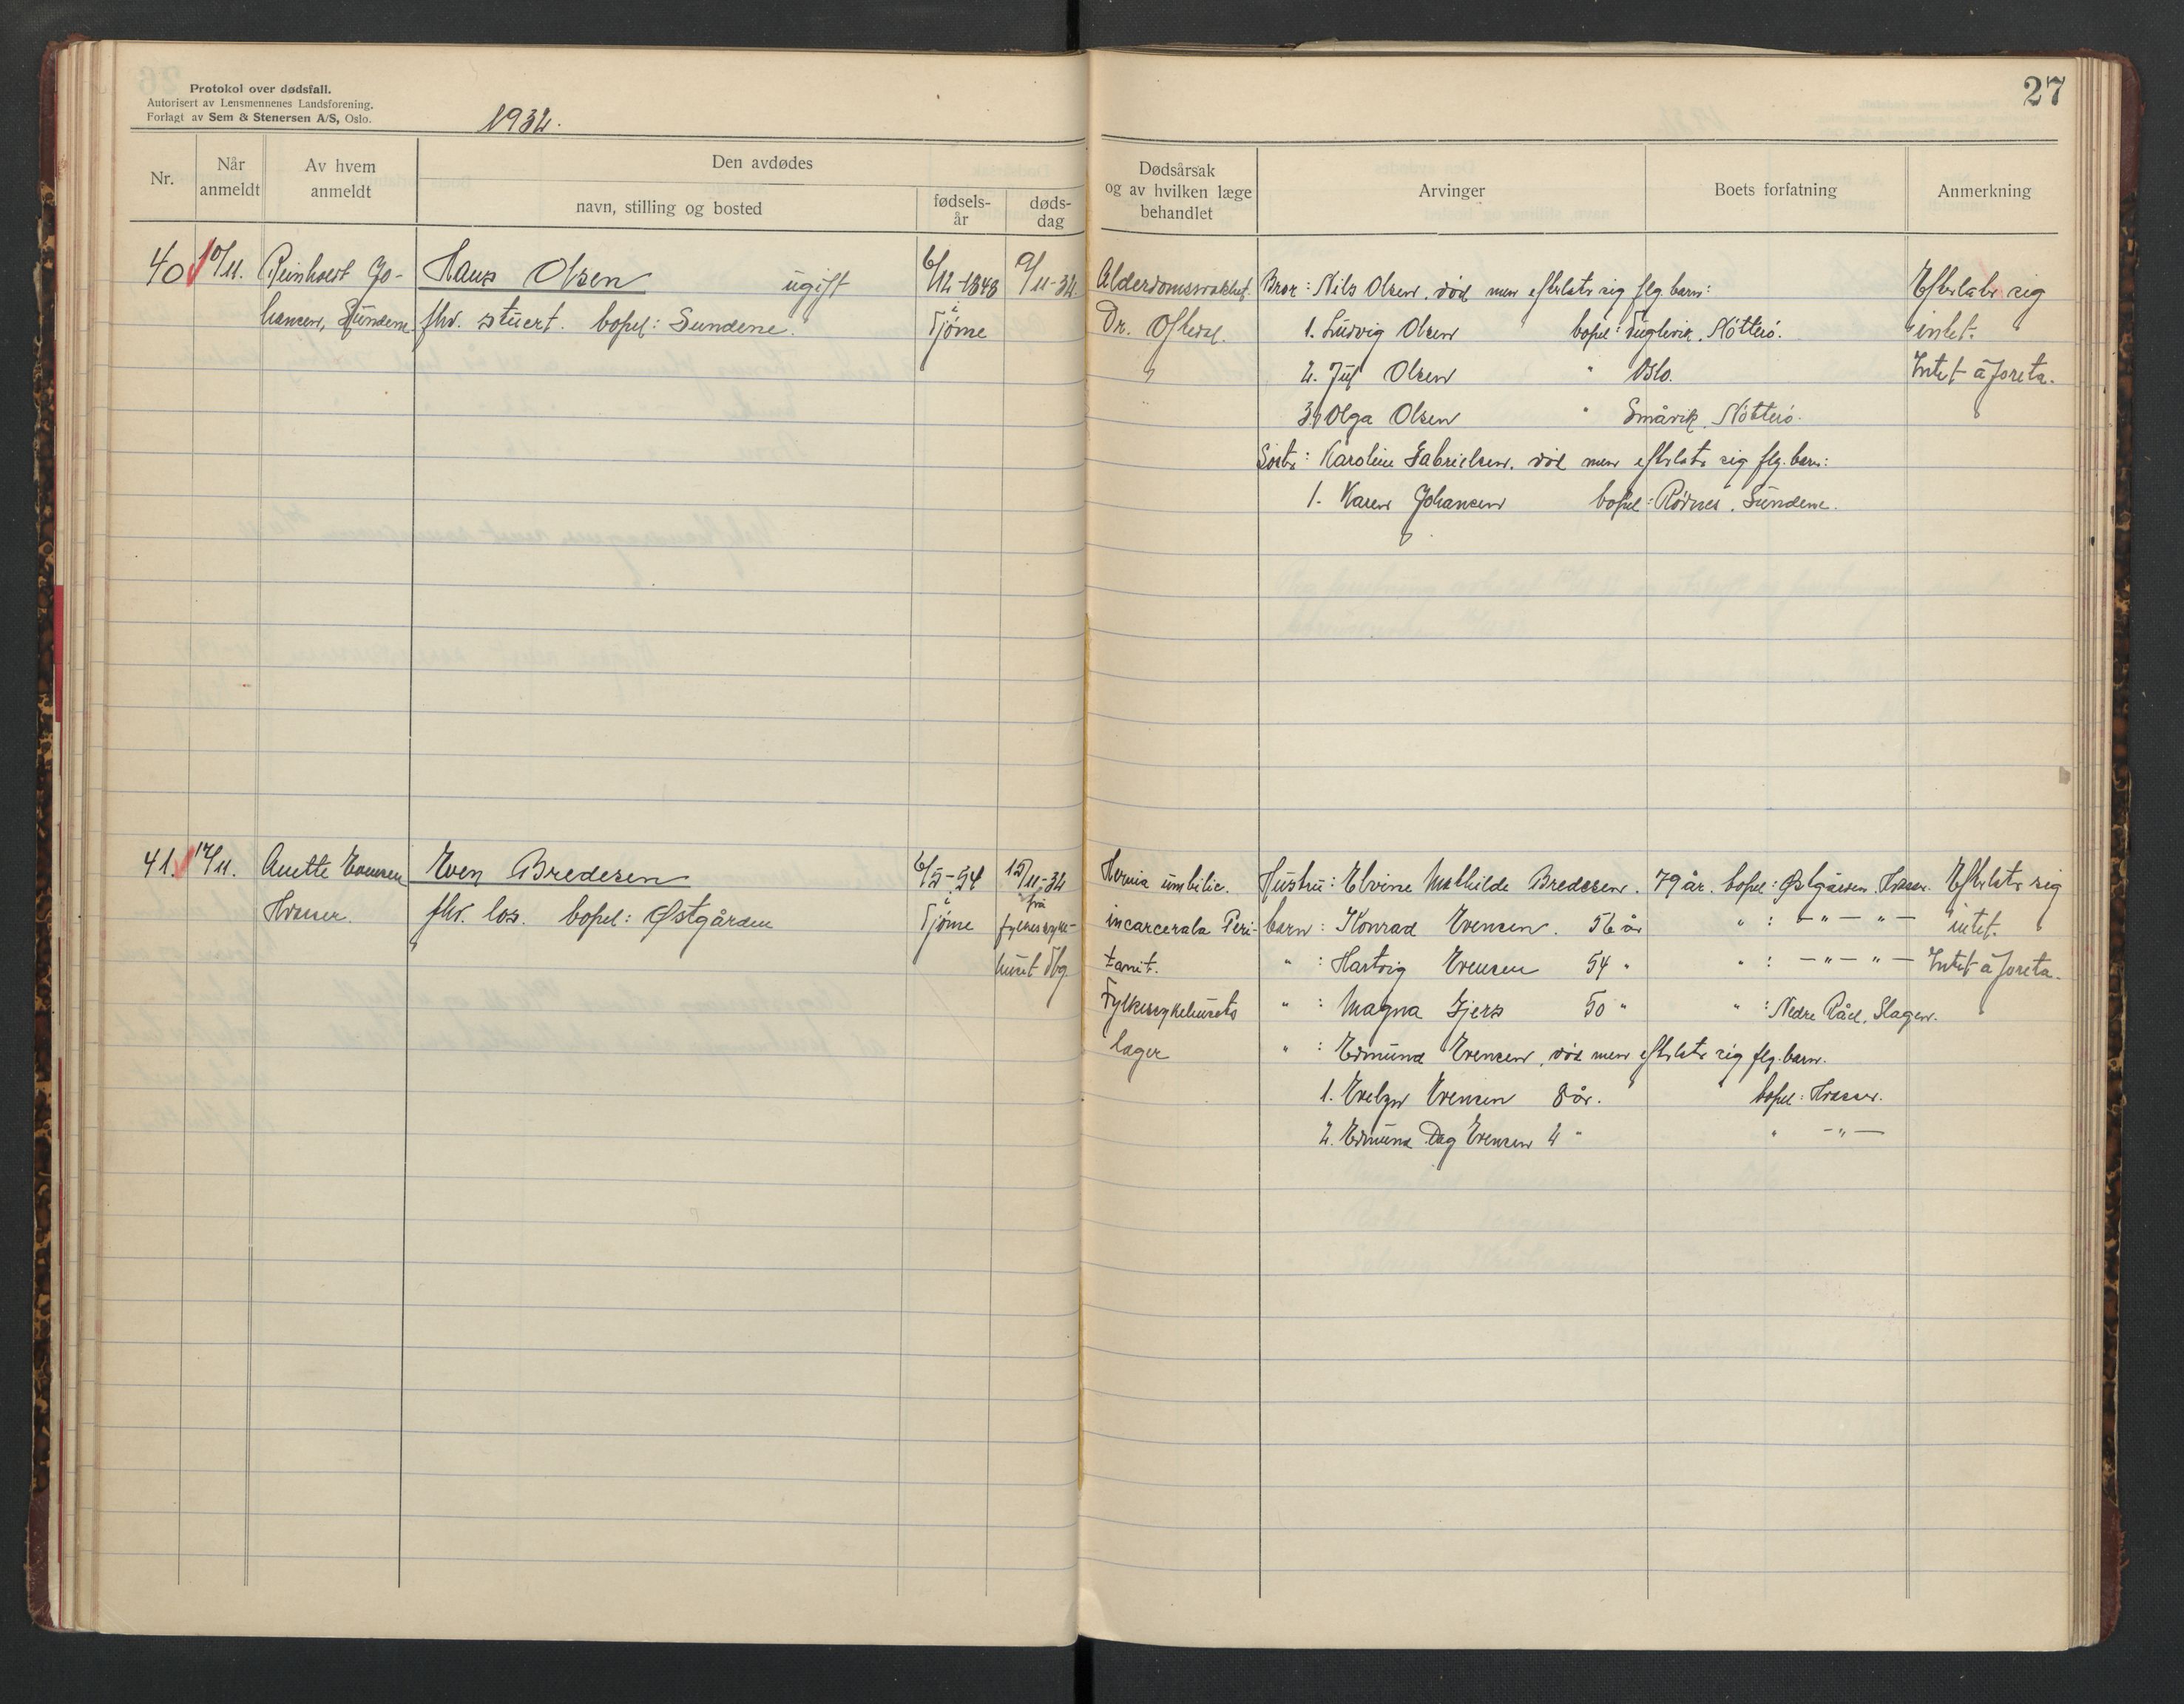 Protokol over dødsfall.
Autorisert av Lensmennenes Landsforening.
Forlagt av Sem & Stenersen A/S, Oslo.
1932.
27
Nr.
Når anmeldt
Av hvem anmeldt
Den avdødes
navn, stilling og bosted
fødsels-år
døds-dag
Dødsårsak og av hvilken læge behandlet
Arvinger
Boets forfatning
Anmerkning
40 10/11. Reinhardt Jo- Hans Olsen ugift 6/12-1848 9/11-32. Alderdomssvakhet. Bror: Nils Olsen, död men efterlater sig flg. barn: Efterlater sig
hansen, Sundene fhv. stuert. bopel: Sundene. å Tjøme Dr. Oftedal. 1. Ludvig Olsen bopel: Fuglevik, Nötterö. intet.
2. Jul Olsen " Oslo. Intet å foreta.
3. Olga Olsen " Småvik, Nötterö.
Søster: Karoline Gabrielsen, död men efterlater sig flg. barn:
1. Karen Johansen bopel: Rödnes, Sundene.
41. 17/11. Anette Evensen Even Bredesen 6/5-54 15/11-32 Hernia umbilic. Hustru: Elvine Mathilde Bredesen. 79 år. bopel: Østgården, Hvasser. Efterlater sig
Hvasser. fhv. los. bopel: Østgården å Tjöme fra fylkessyke- incarcerata Peri- barn: Konrad Evensen. 56 år " : - " - " - intet.
huset Tbg. tonit. " : Hartvig Evensen 54 " " : - " - " - Intet å foreta.
Fylkessykehusets " : Magna Gjers 50 " " : Nedre Råel, Slagen.
læger " : Edmund Evensen, död men efterlater sig flg. barn.
1. Evelyn Evensen 8 år. bopel: Hvasser.
2. Edmund Dag Evensen 2 " " - " -